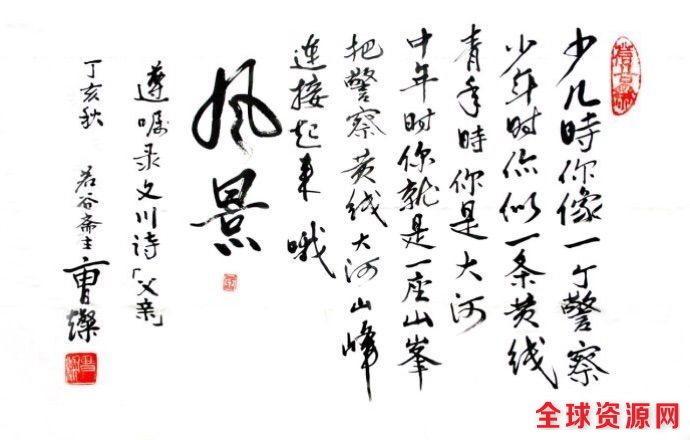 少儿時你像一个警察
少年时你似一条黄线
青年時你是大河
中年时你就是一座山峯
把警察黄线大河山峰
连接起来哦
风景
遵嘱录文川诗「父亲」
丁亥秋 若谷斋主曹灿
全球资源网